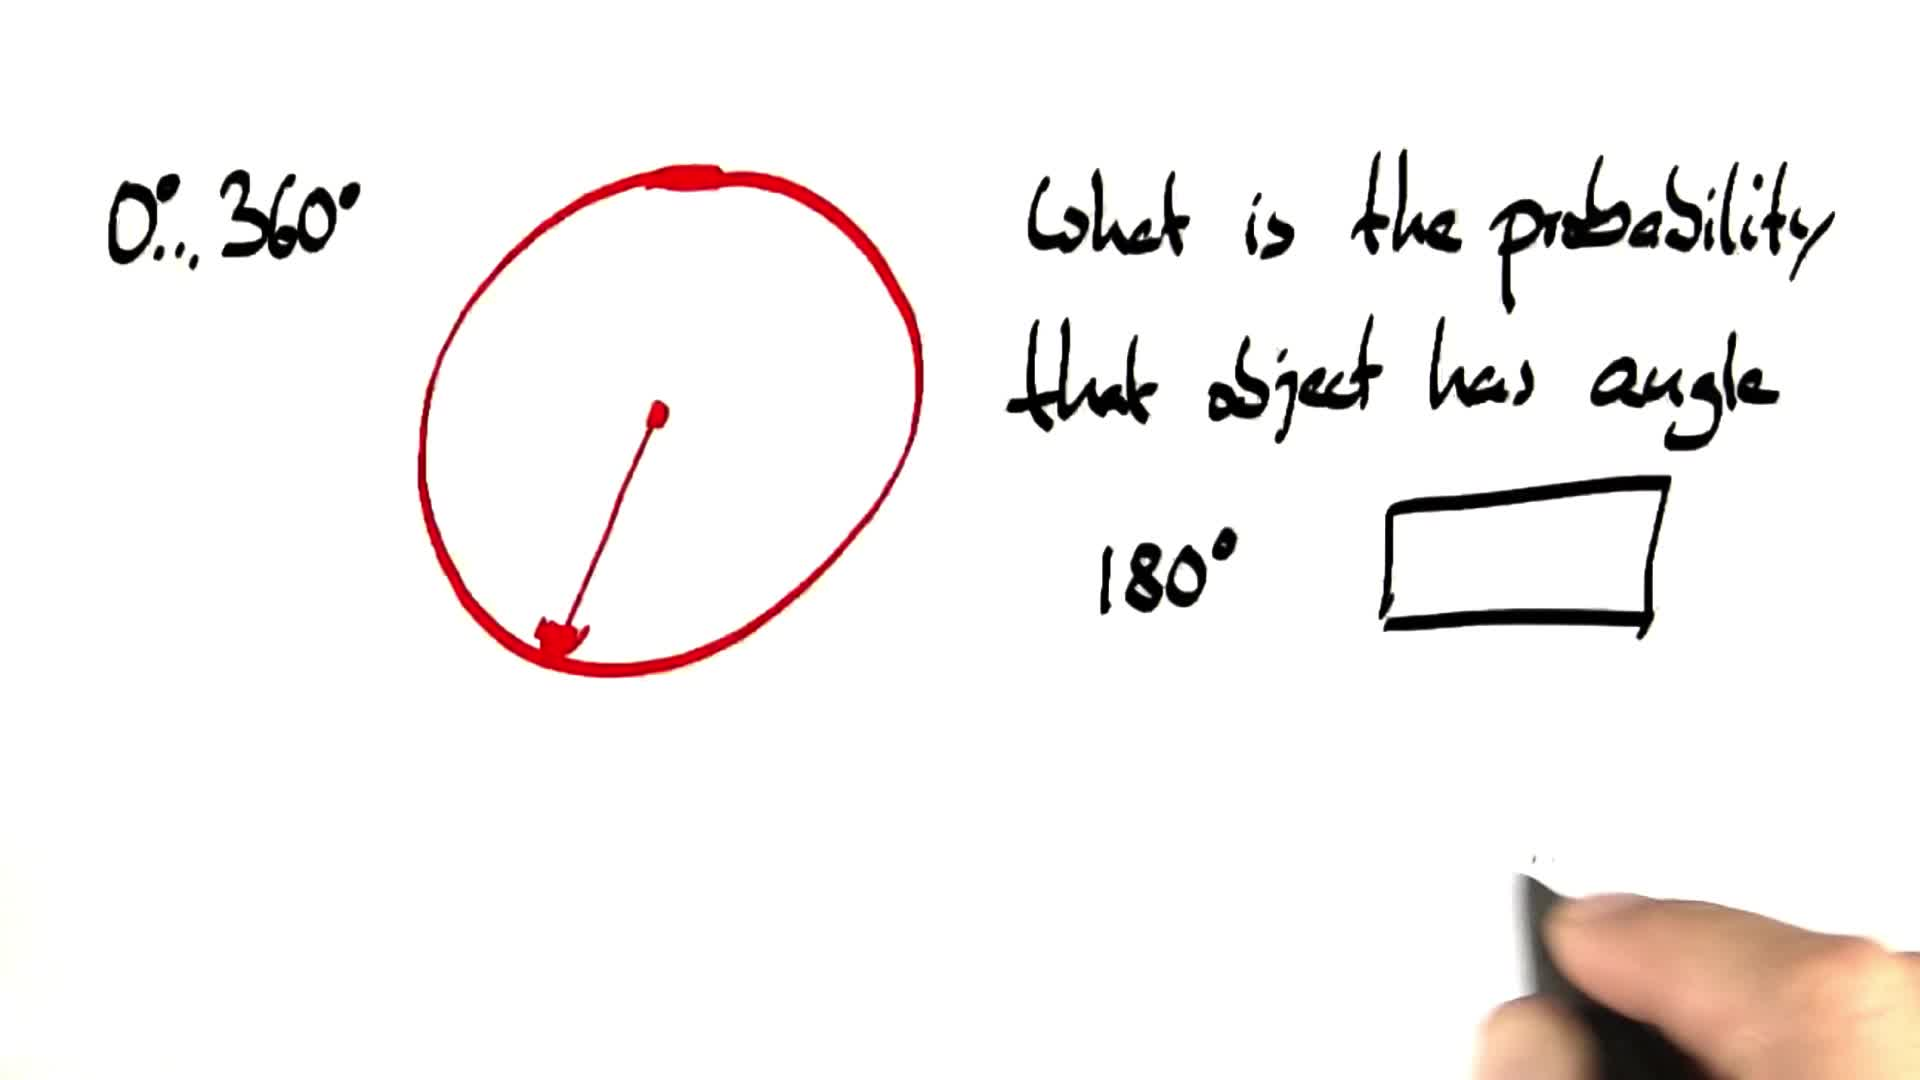 0°...360°
What is the probability
that object has angle
180°